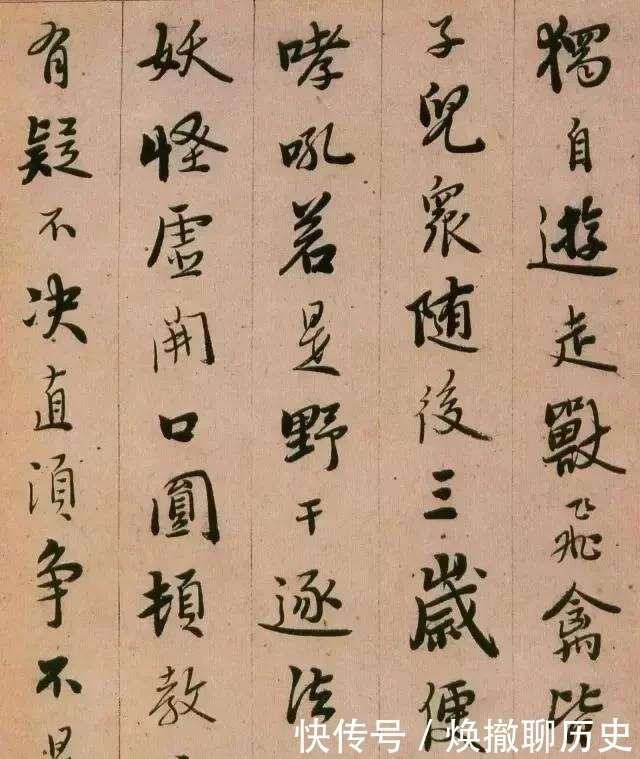 獨自遊走獸飛禽皆
子兒衆随後三歲便
哮吼若是野干逐法
妖怪虛開口圓頓教
有疑不决直須争不
快传号 / 焕撤聊历史